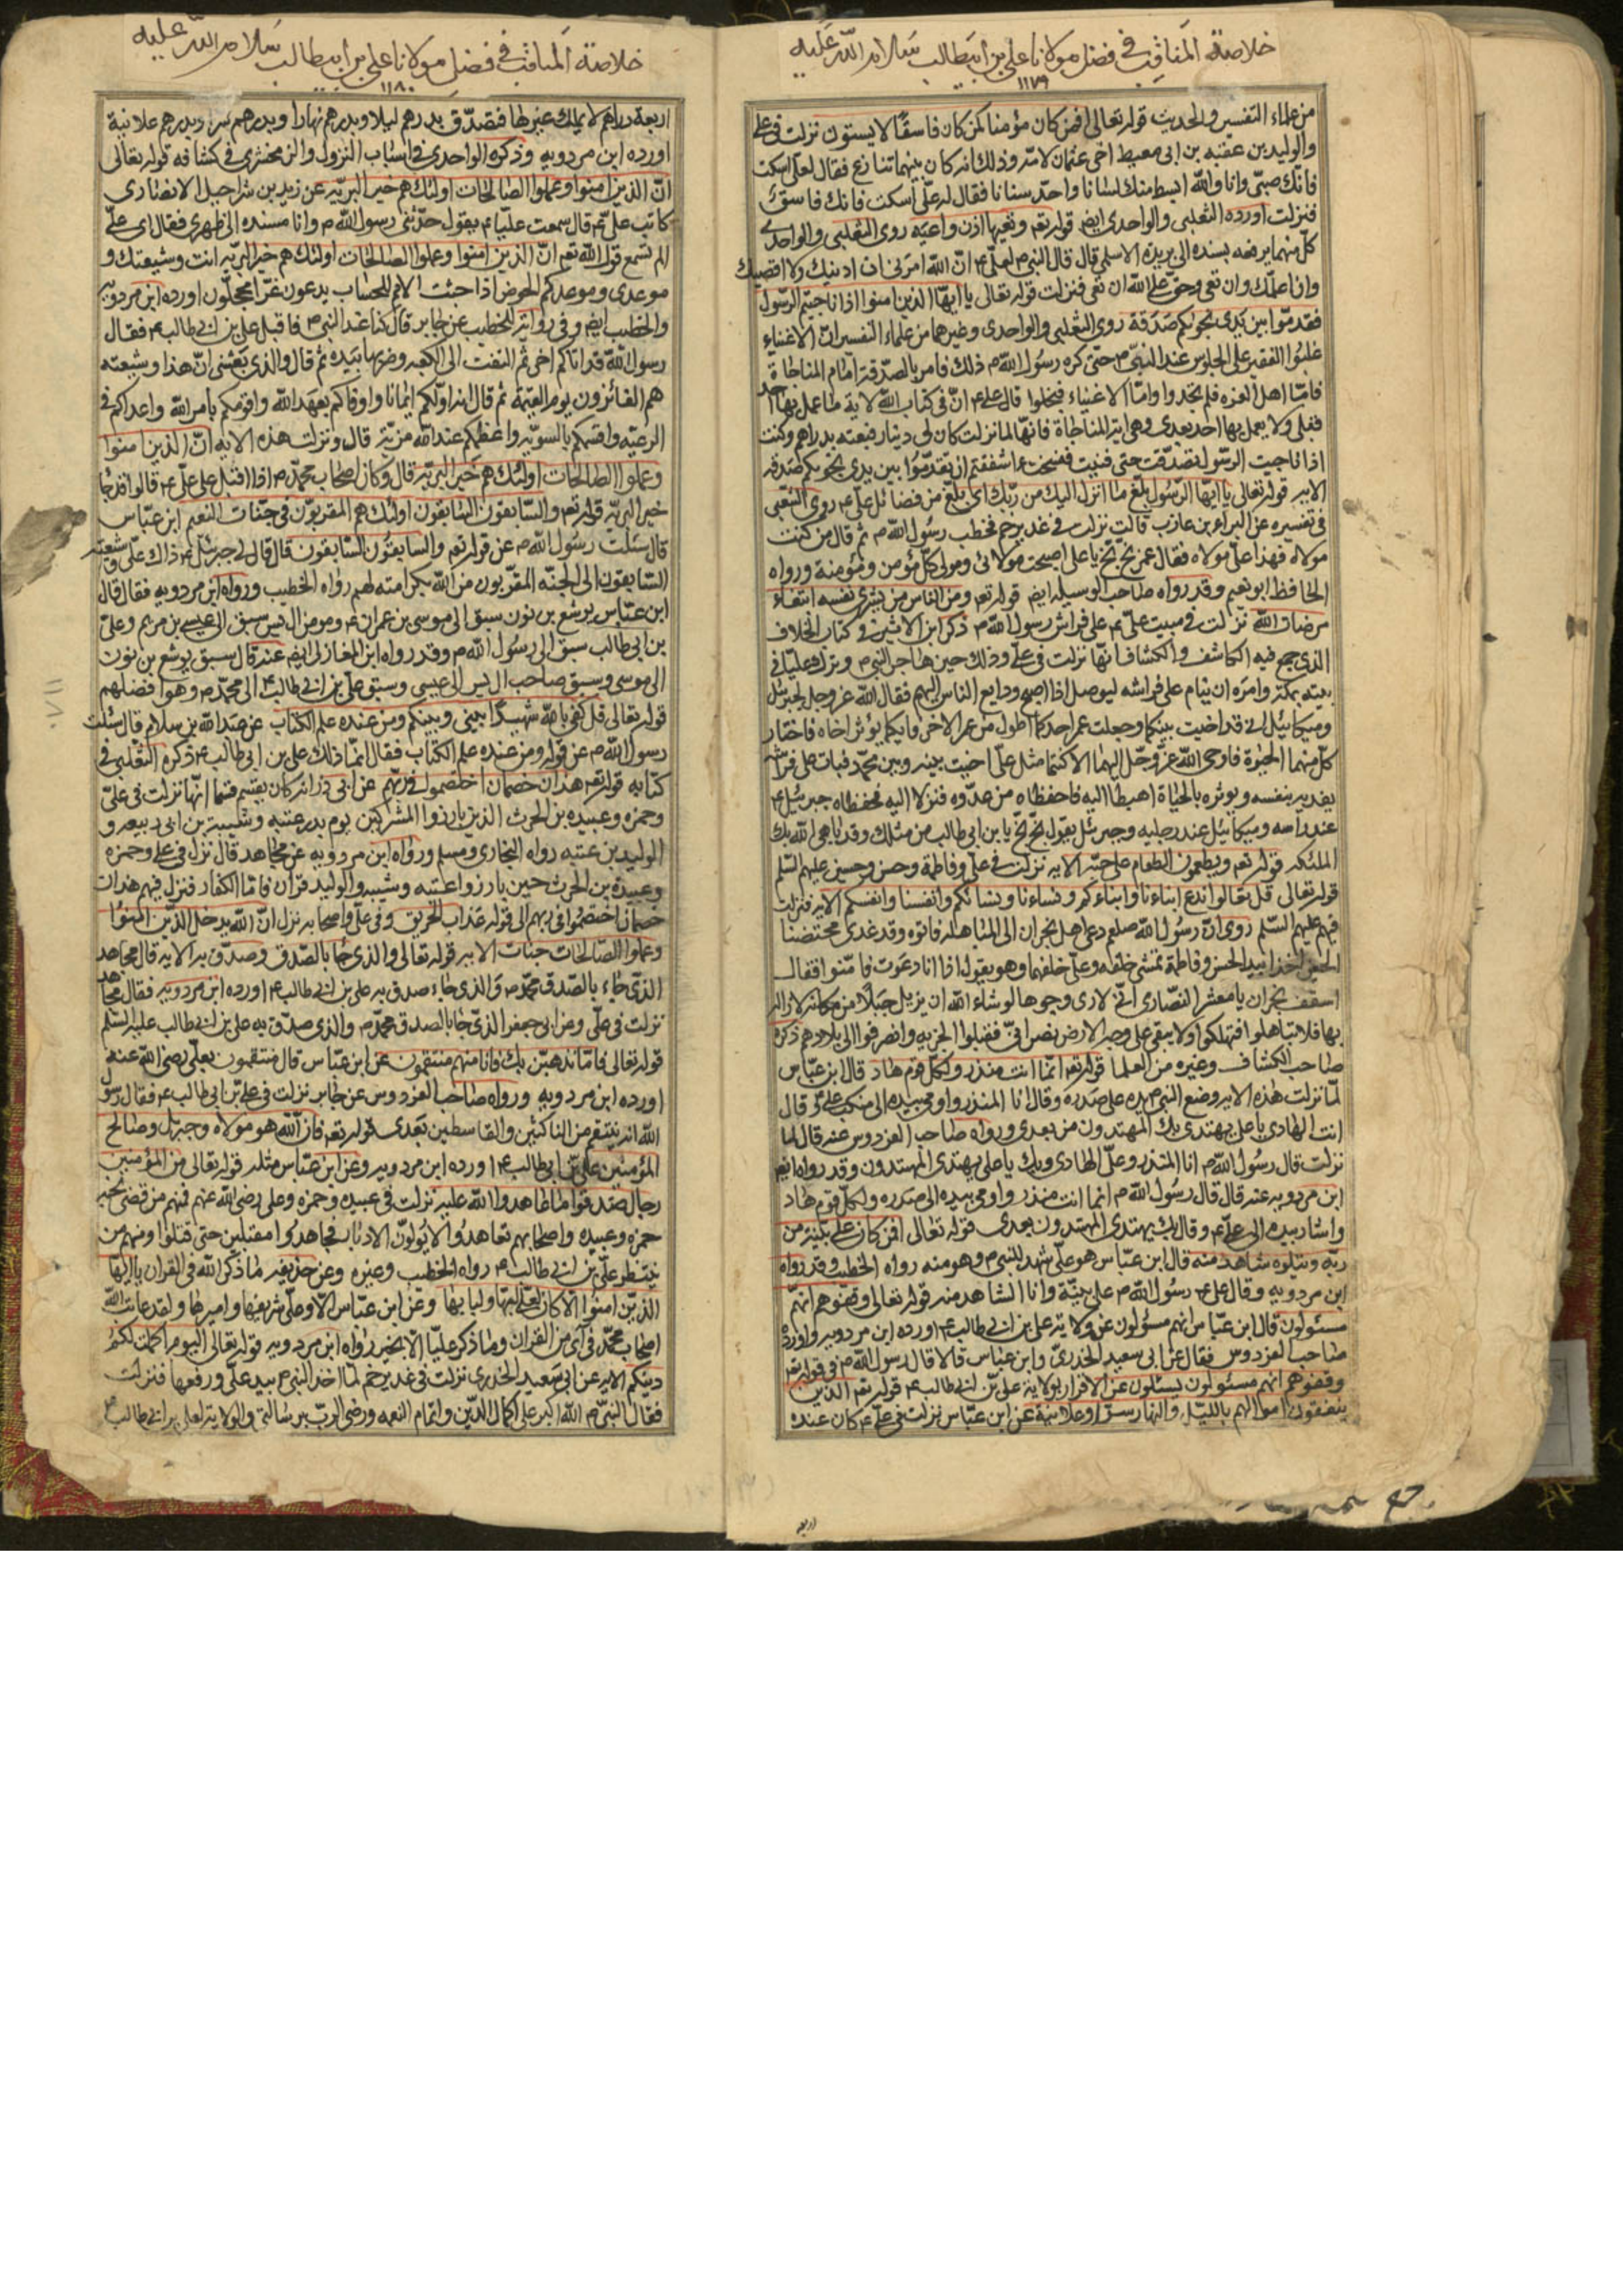 خلاصة المناقب في فضل مولانا علي بن ابيطالب سلام الله عليه
١١٧٩
من علماء التفسير والحديث قوله تعالى افمن كان مؤمنا كمن كان فاسقًا لا يستوون نزلت في علي
والوليد بن عقبه بن ابي معيط اخي عثمان لامّه وذلك انه كان بينهما تنازع فقال لعلي اسكت
فانك صبيّ وانا والله ابسط منك لسانا واحدّ سنانا فقال له علي اسكت فانك فاسق
فنزلت اورده الثعلبي والواحدي ايض قوله تعم وتعيها اذن واعيه روى الثعلبي والواحدي
كلّ منهما يرفعه بسنده الى بريدة الاسلمي قال قال النبي ﷺ لعلي ع انّ الله امرني ان ادنيك ولا اقصيك
وان اعلّمك وان تعي وحقّ على الله ان تعي فنزلت قوله تعالى يا ايها الذين امنوا اذا ناجيتم الرسول
فقدموا بين يدى نجويكم صدقة روى الثعلبي والواحدى وغيرهما من علماء التفسير انّ الاغنياء
غلبوا الفقير على الجلوس عند النبي ﷺ حتى كره رسول الله ﷺ ذلك فامر بالصدقة امام المناجاة
فامّا اهل العزه فلم يجدوا وامّا الاغنياء فبخلوا قال علي ع انّ في كتاب الله لاية ما عمل بها احد
قبلي ولا يعمل بها احد بعدى وهي اية المناجاة فانها لما نزلت كان لي دينار فبعته بدراهم وكنت
اذا ناجيت الرسول تصدّقت حتى فنيت فنسخت ءاشفقتم ان تقدموا بين يدى نجويكم صدقه
الايه قوله تعالى يا ايها الرسول بلغ ما انزل اليك من ربك اى بلّغ من فضائل علي ع روى الثعلبي
في تفسيره عن البراء بن عازب قالت نزلت في غدير خم فخطب رسول الله ﷺ ثم قال من كنت
مولاه فهذا علي مولاه فقال عمر بخ بخ يا علي اصبحت مولائى ومولى كلّ مؤمن ومؤمنة ورواه
الحافظ ابو نعيم وقد رواه صاحب الوسيله ايض قوله تعم ومن الناس من يشري نفسه ابتغاء
مرضات الله نزلت في مبيت علي ع على فراش رسول الله ﷺ ذكر ابن الاثير في كتاب الخلاف
الذي جمع فيه الكاشف والكشاف انها نزلت في علي وذلك حين هاجر النبي ﷺ وترك عليا في
بيته بمكة وامره ان ينام على فراشه ليوصل اذا اصبح ودايع الناس اليهم فقال الله عز وجل لجبرئيل
وميكائيل اني قد اخيت بينكما وجعلت عمر احدكما اطول من عمر الاخر فايكما يؤثر اخاه فاختار
كل منهما الحيوة فاوحى الله عز وجل اليهما الا كنتما مثل علي اخيت بينه وبين محمد فبات على فراشه
يفديه بنفسه ويؤثره بالحياة اهبطا اليه فاحفظاه من عدوه فنزلا اليه فحفظاه جبرئيل ع
عند راسه وميكائيل عند رجليه وجبرئيل يقول بخ بخ يا بن ابي طالب من مثلك وقد باهى الله بك
الملئكه قوله تعم ويطعمون الطعام على حبه الايه نزلت في علي وفاطمة وحسن وحسين عليهم السلم
قوله تعالى قل تعالوا ندع ابناءنا وابناءكم ونساءنا ونساءكم وانفسنا وانفسكم الايه فنزلت
فيهم عليهم السلم روى انّ رسول الله صلعم دعى اهل نجران الى المباهله فاتوه وقد غدى محتضنا
الحسين اخذا بيد الحسن وفاطمة تمشي خلفه وعلي خلفهما وهو يقول اذا انا دعوت فامّنوا فقال
اسقف نجران يا معشر النصارى انّي لارى وجوها لو شاء الله ان يزيل جبلا من مكانه لازاله
بها فلا تباهلوا فتهلكوا ولا يبقى على وجه الارض نصرانيّ فقبلوا الجزيه وانصرفوا الى بلادهم ذكره
صاحب الكشاف وغيره من العلما قوله تعم انما انت منذر ولكلّ قوم هاد قال ابن عبّاس
لمّا نزلت هذه الايه وضع النبي ﷺ يده على صدره وقال انا المنذر واومى بيده الى منكب علي ع قال
انت الهادي يا علي يهتدي بك المهتدون من بعدي ورواه صاحب الفردوس عنه قال لما
نزلت قال رسول الله ﷺ انا المنذر وعليّ الهادي وبك يا علي يهتدى المهتدون وقد رواه ايض
ابن مردويه عنه قال قال رسول الله ﷺ انما انت منذر واومى بيده الى صدره ولكل قوم هاد
واشار بيده الى علي ع وقال بك يهتدى المهتدون بعدى قوله تعالى افمن كان على بيّنة من
ربّه ويتلوه شاهد منه قال ابن عباس هو علي شهد للنبي ﷺ وهو منه رواه الخطيب وقد رواه
ابن مردويه وقال علي ع رسول الله ﷺ على بيّنة وانا الشاهد منه قوله تعالى وقفوهم انهم
مسئولون قال ابن عباس انهم مسؤلون عن ولاية علي بن ابي طالب ع اورده ابن مردويه واورده
صاحب الفردوس فقال عن ابي سعيد الخدري وابن عباس قالا قال رسول الله ﷺ في قوله تعم
وقفوهم انهم مسئولون يسئلون عن الاقرار بولاية علي بن ابي طالب ع قوله تعم الذين
ينفقون اموالهم بالليل والنهار سرّا وعلانية عن ابن عباس نزلت في علي ع كان عنده
اربعة
خلاصة المناقب في فضل مولانا علي بن ابيطالب سلام الله عليه
١١٨٠
اربعة دراهم لا يملك غيرها فتصدّق بدرهم ليلا وبدرهم نهارا وبدرهم سرا وبدرهم علانية
اورده ابن مردويه وذكره الواحدي في اسباب النزول والزمخشري في كشافه قوله تعالى
انّ الذين امنوا وعملوا الصالحات اولئك هم خير البريّه عن زيد بن شراجيل الانصاري
كاتب علي ع قال سمعت عليا ع يقول حدثني رسول الله ﷺ وانا مسنده الى ظهري فقال اى علي
الم تسمع قول الله تعم انّ الذين امنوا وعملوا الصالحات اولئك هم خير البريه انت وشيعتك و
موعدى وموعدكم الحوض اذا جئت الامم للحساب يدعون غرّا محجلون اورده ابن مردويه
والخطيب ايض وفي رواية للخطيب عن جابر قال كنا عند النبي ﷺ فاقبل علي بن ابي طالب ع فقال
رسول الله قد اتاكم اخي ثم التفت الى الكعبه وضربها بيده ثم قال والذي بعثني انّ هذا وشيعته
هم الفائزون يوم القيمة ثم قال انه اولكم ايمانا واوفاكم بعهد الله واقومكم بامر الله واعدلكم في
الرعيّه واقسمكم بالسويّه واعظمكم عند الله مزيّة قال ونزلت هذه الايه انّ الذين امنوا
وعملوا الصالحات اولئك هم خير البريّه قال وكان اصحاب محمد ﷺ اذا اقبل علي ع قالوا قد جا
خير البريّه قوله تعم والسّابقون السّابقون اولئك هم المقربون في جنّات النعيم ابن عبّاس
قال سئلت رسول الله ﷺ عن قوله تعم والسابقون السابقون قال قال لي جبرئيل ع ذاك علي وشيعته
السّابقون الى الجنّه المقرّبون من الله بكرامته لهم رواه الخطيب ورواه ابن مردويه فقال قال
ابن عبّاس يوشع بن نون سبق الى موسى بن عمران ع ومؤمن ال يس سبق الى عيسى بن مريم وعلي
بن ابي طالب سبق الى رسول الله ﷺ وقد رواه ابن المغازلى ايض عنه قال سبق يوشع بن نون
الى موسى وسبق صاحب ال يس الى عيسى وسبق علي بن ابي طالب ع الى محمد ﷺ وهو افضلهم
قوله تعالى قل كفى بالله شهيدًا بيني وبينكم ومن عنده علم الكتاب عن عبد الله بن سلام قال سئلت
رسول الله ﷺ عن قوله ومن عنده علم الكتاب فقال انّما ذلك علي بن ابي طالب ع ذكره الثعلبي في
كتابه قوله تعم هذان خصمان اختصموا في ربهم عن ابي ذر انه كان يقسم قسما انّها نزلت في علي
وحمزه وعبيده بن الحرث الذين بارزوا المشركين يوم بدر عتبه وشيبة بن ابي ربيعه و
الوليد بن عتبه رواه البخاري ومسلم ورواه ابن مردويه عن مجاهد قال نزل في علي وحمزه
وعبيدة بن الحرث حين بارزوا عتبه وشيبه والوليد قران فامّا الكفار فنزل فيهم هذان
خصمان اختصموا في ربهم الى قوله عذاب الحريق وفي علي واصحابه نزل انّ الله يدخل الذين امنوا
وعملوا الصّالحات جنات الايه قوله تعالى والذي جا بالصّدق وصدّق به الاية قال مجاهد
الذي جاء بالصدق محمد ﷺ والذى جاء صدق به علي بن ابي طالب ع اورده ابن مردويه فقال مجاهد
نزلت في علي وعن ابي جعفر الذي جا بالصدق محمد ﷺ والذي صدّق به علي بن ابي طالب عليه السلم
قوله تعالى فامّا نذهبنّ بك فانا منهم منتقمون عن ابن عبّاس قال منتقمون بعلي رضى الله عنه
اورده ابن مردويه ورواه صاحب الفردوس عن جابر نزلت في علي بن ابي طالب ع فقال رسول
الله انه ينتقم من الناكثين والقاسطين بعدى قوله تعم فانّ الله هو مولاه وجبريل وصالح
المؤمنين علي بن ابي طالب ع اورده ابن مردويه وعن ابن عباس مثله قوله تعالى من المؤمنين
رجال صدقوا ما عاهدوا الله عليه نزلت في عبيده وحمزه وعلي رضى الله عنهم فمنهم من قضى نحبه
حمزه وعبيده واصحابهم تعاهدوا لا يولون الادبار فجاهدوا مقبلين حتى قتلوا ومنهم من
ينتظر علي بن ابي طالب ع رواه الخطيب وغيره وعن حذيفه ما ذكر الله في القران يا ايها
الذين امنوا الا كان لعلي لبّها ولبابها وعن ابن عبّاس الّا وعلي شريفها واميرها ولقد عاتب الله
اصحاب محمد في آى من القران وما ذكر عليا الا بخير رواه ابن مردويه قوله تعالى اليوم اكملت لكم
دينكم الايه عن ابي سعيد الخدري نزلت في غدير خم لما اخذ النبي ﷺ بيد علي ورفعها فنزلت
فقال النبي ﷺ الله اكبر على اكمال الدّين واتمام النعمه ورضى الربّ برسالتي والولاية لعلي بن ابي طالب ع